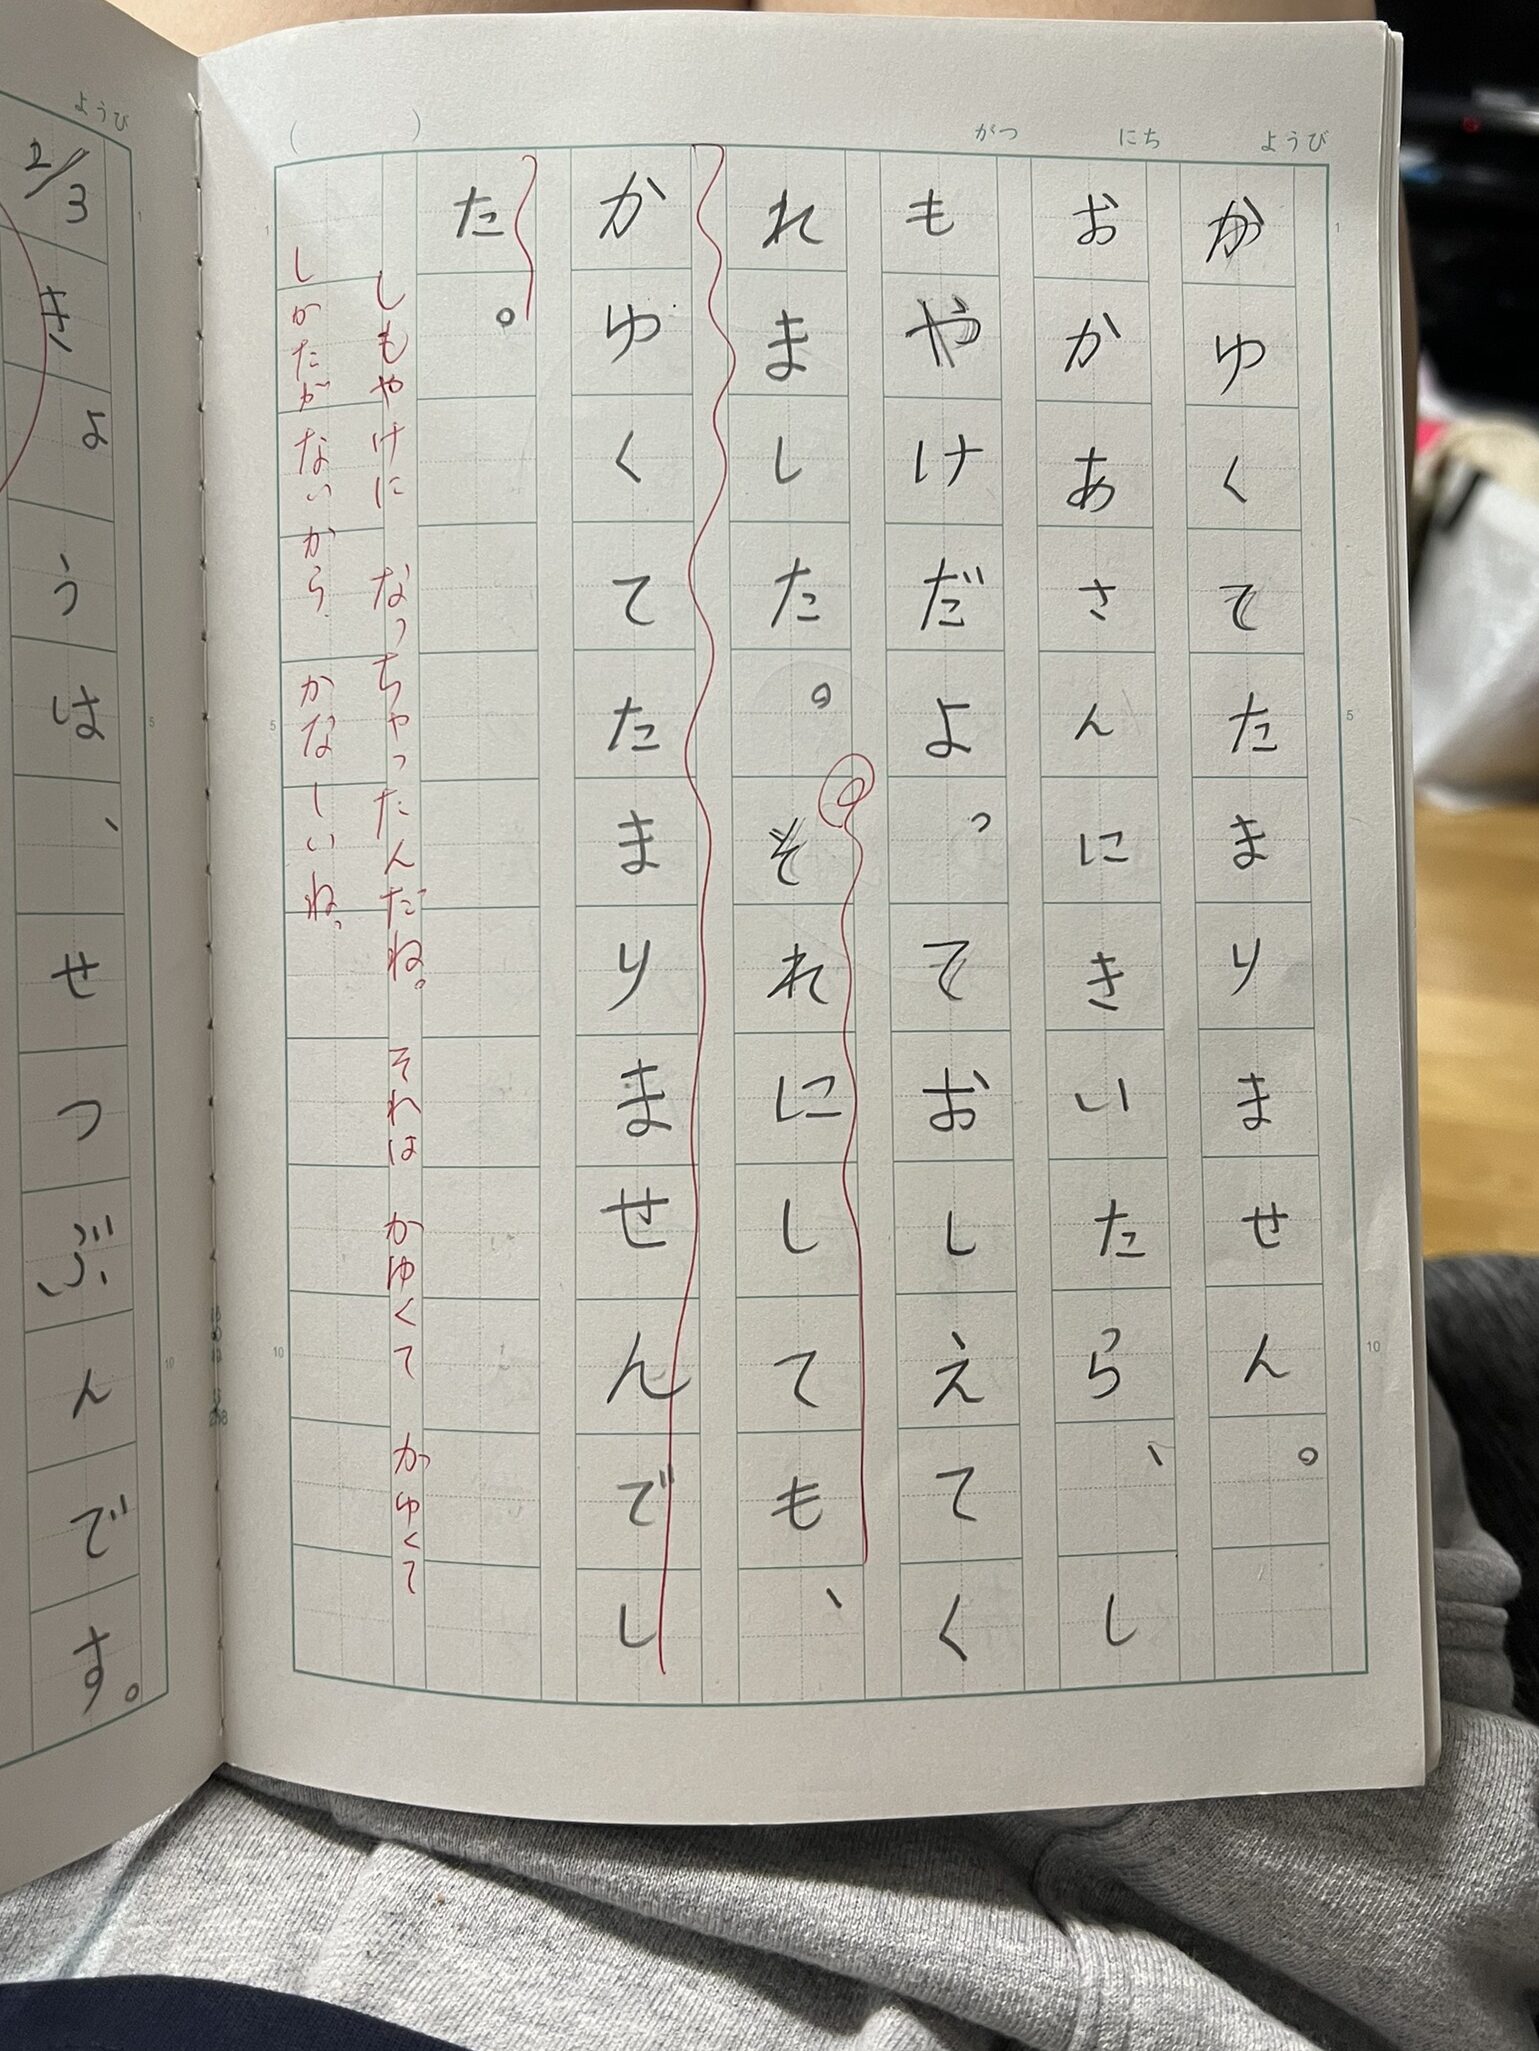 がつ にち ようび
かゆくてたまりません。
おかあさんにきいたら、し
もやけだよっておしえてく
れました。それにしても、
かゆくてたまりませんでし
た。
しもやけに なっちゃったんだね。 それは かゆくて かゆくて
しかたがないから かなしいね。
ようび
2/3
きょうは、せつぶんです。